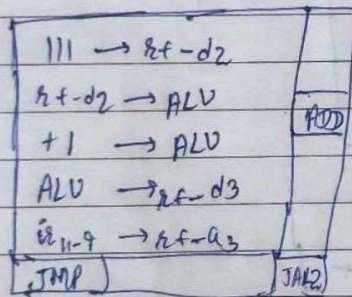 111 → rf-d2
rf-d2 → ALU
+1 → ALU
ADD
ALU → rf-d3
ir11-9 → rf-a3
JMP
JAL2